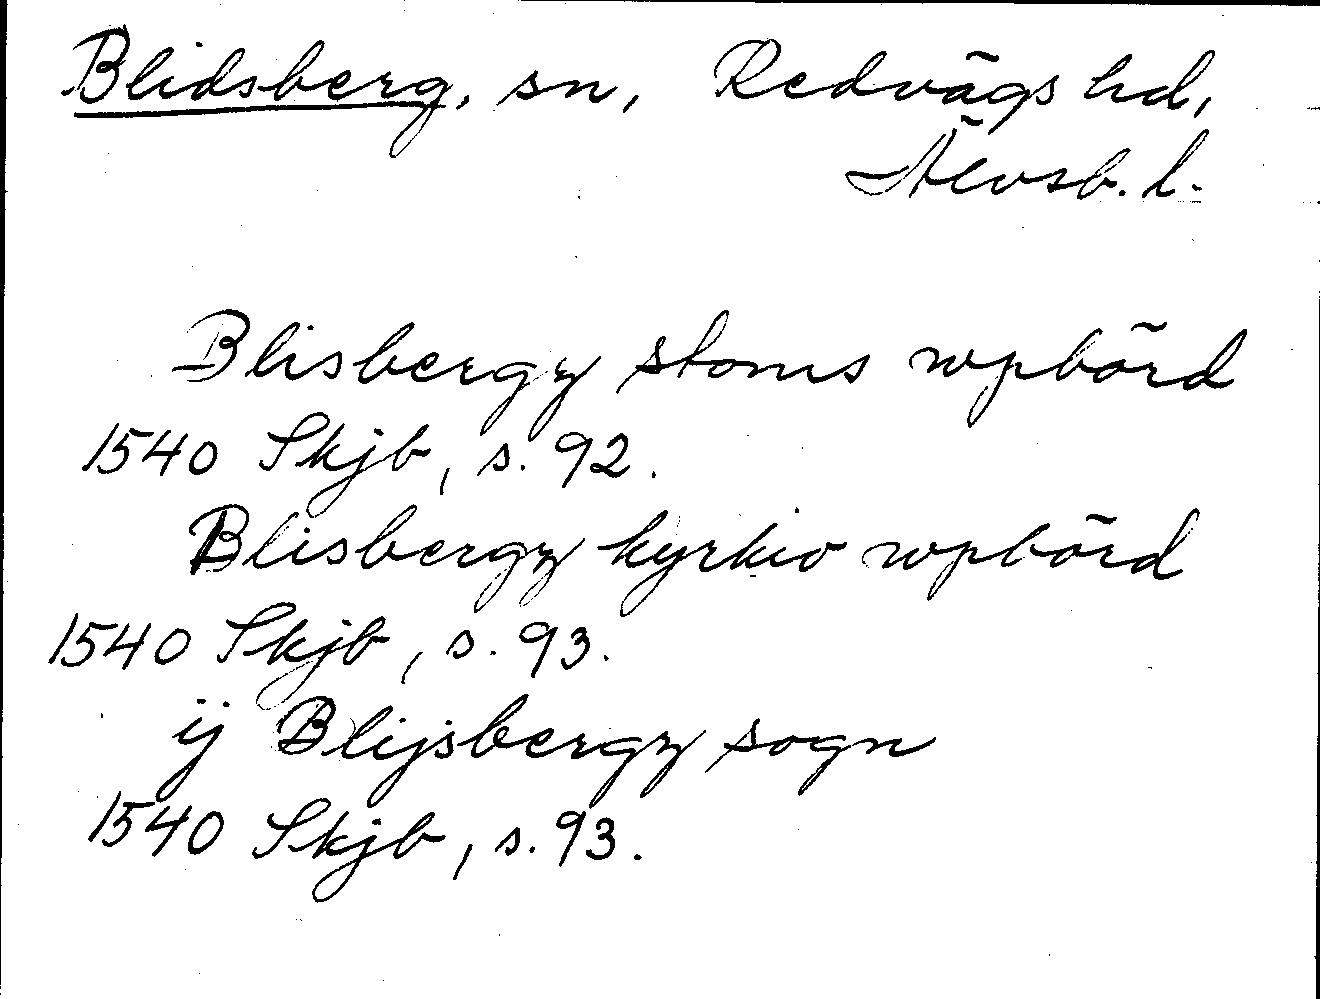 Blidsberg, sn, Redvägs hd,
Älvsb. l.
Blisbergz stoms wpbörd
1540 Skjb, s. 92.
Blisbergz kyrkio wpbörd
1540 Skjb, s. 93.
ij Blijsbergz sogn
1540 Skjb, s. 93.